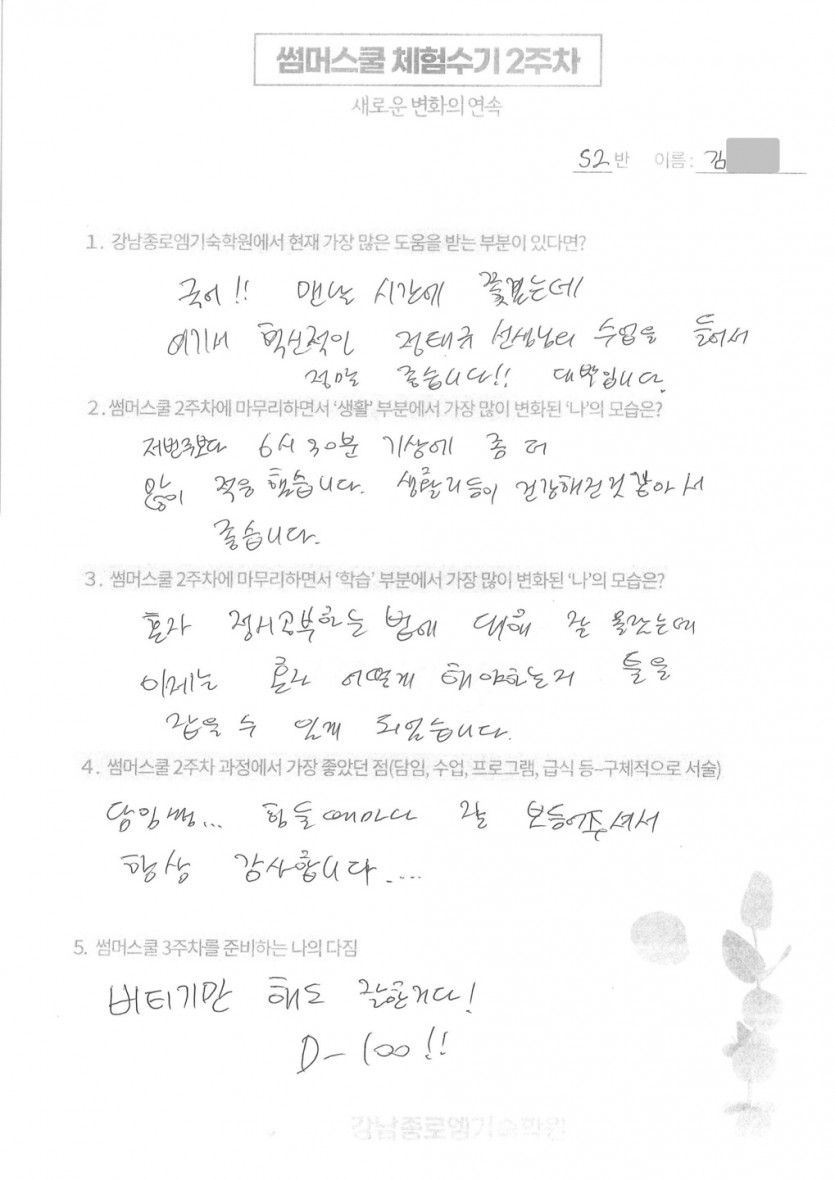 썸머스쿨 체험수기 2주차
새로운 변화의 연속
S2 반 이름 : 김
1. 강남종로엠기숙학원에서 현재 가장 많은 도움을 받는 부분이 있다면?
국어!! 맨날 시간에 쫓겼는데
여기서 혁신적인 정태규 선생님의 수업을 들어서
정말 좋습니다!! 대박입니다.
2. 썸머스쿨 2주차에 마무리하면서 '생활' 부분에서 가장 많이 변화된 '나'의 모습은?
저번주보다 6시 30분 기상에 좀 더
많이 적응 했습니다. 생활리듬이 건강해진것 같아서
좋습니다.
3. 썸머스쿨 2주차에 마무리하면서 '학습' 부분에서 가장 많이 변화된 '나'의 모습은?
혼자 정시공부하는 법에 대해 잘 몰랐는데
이제는 혼자 어떻게 해야하는지 틀을
잡을 수 있게 되었습니다.
4. 썸머스쿨 2주차 과정에서 가장 좋았던 점(담임, 수업, 프로그램, 급식 등-구체적으로 서술)
담임쌤... 힘들때마다 잘 보듬어주셔서
항상 감사합니다....
5. 썸머스쿨 3주차를 준비하는 나의 다짐
버티기만 해도 잘한거다!
D-100!!
강남종로엠기숙학원